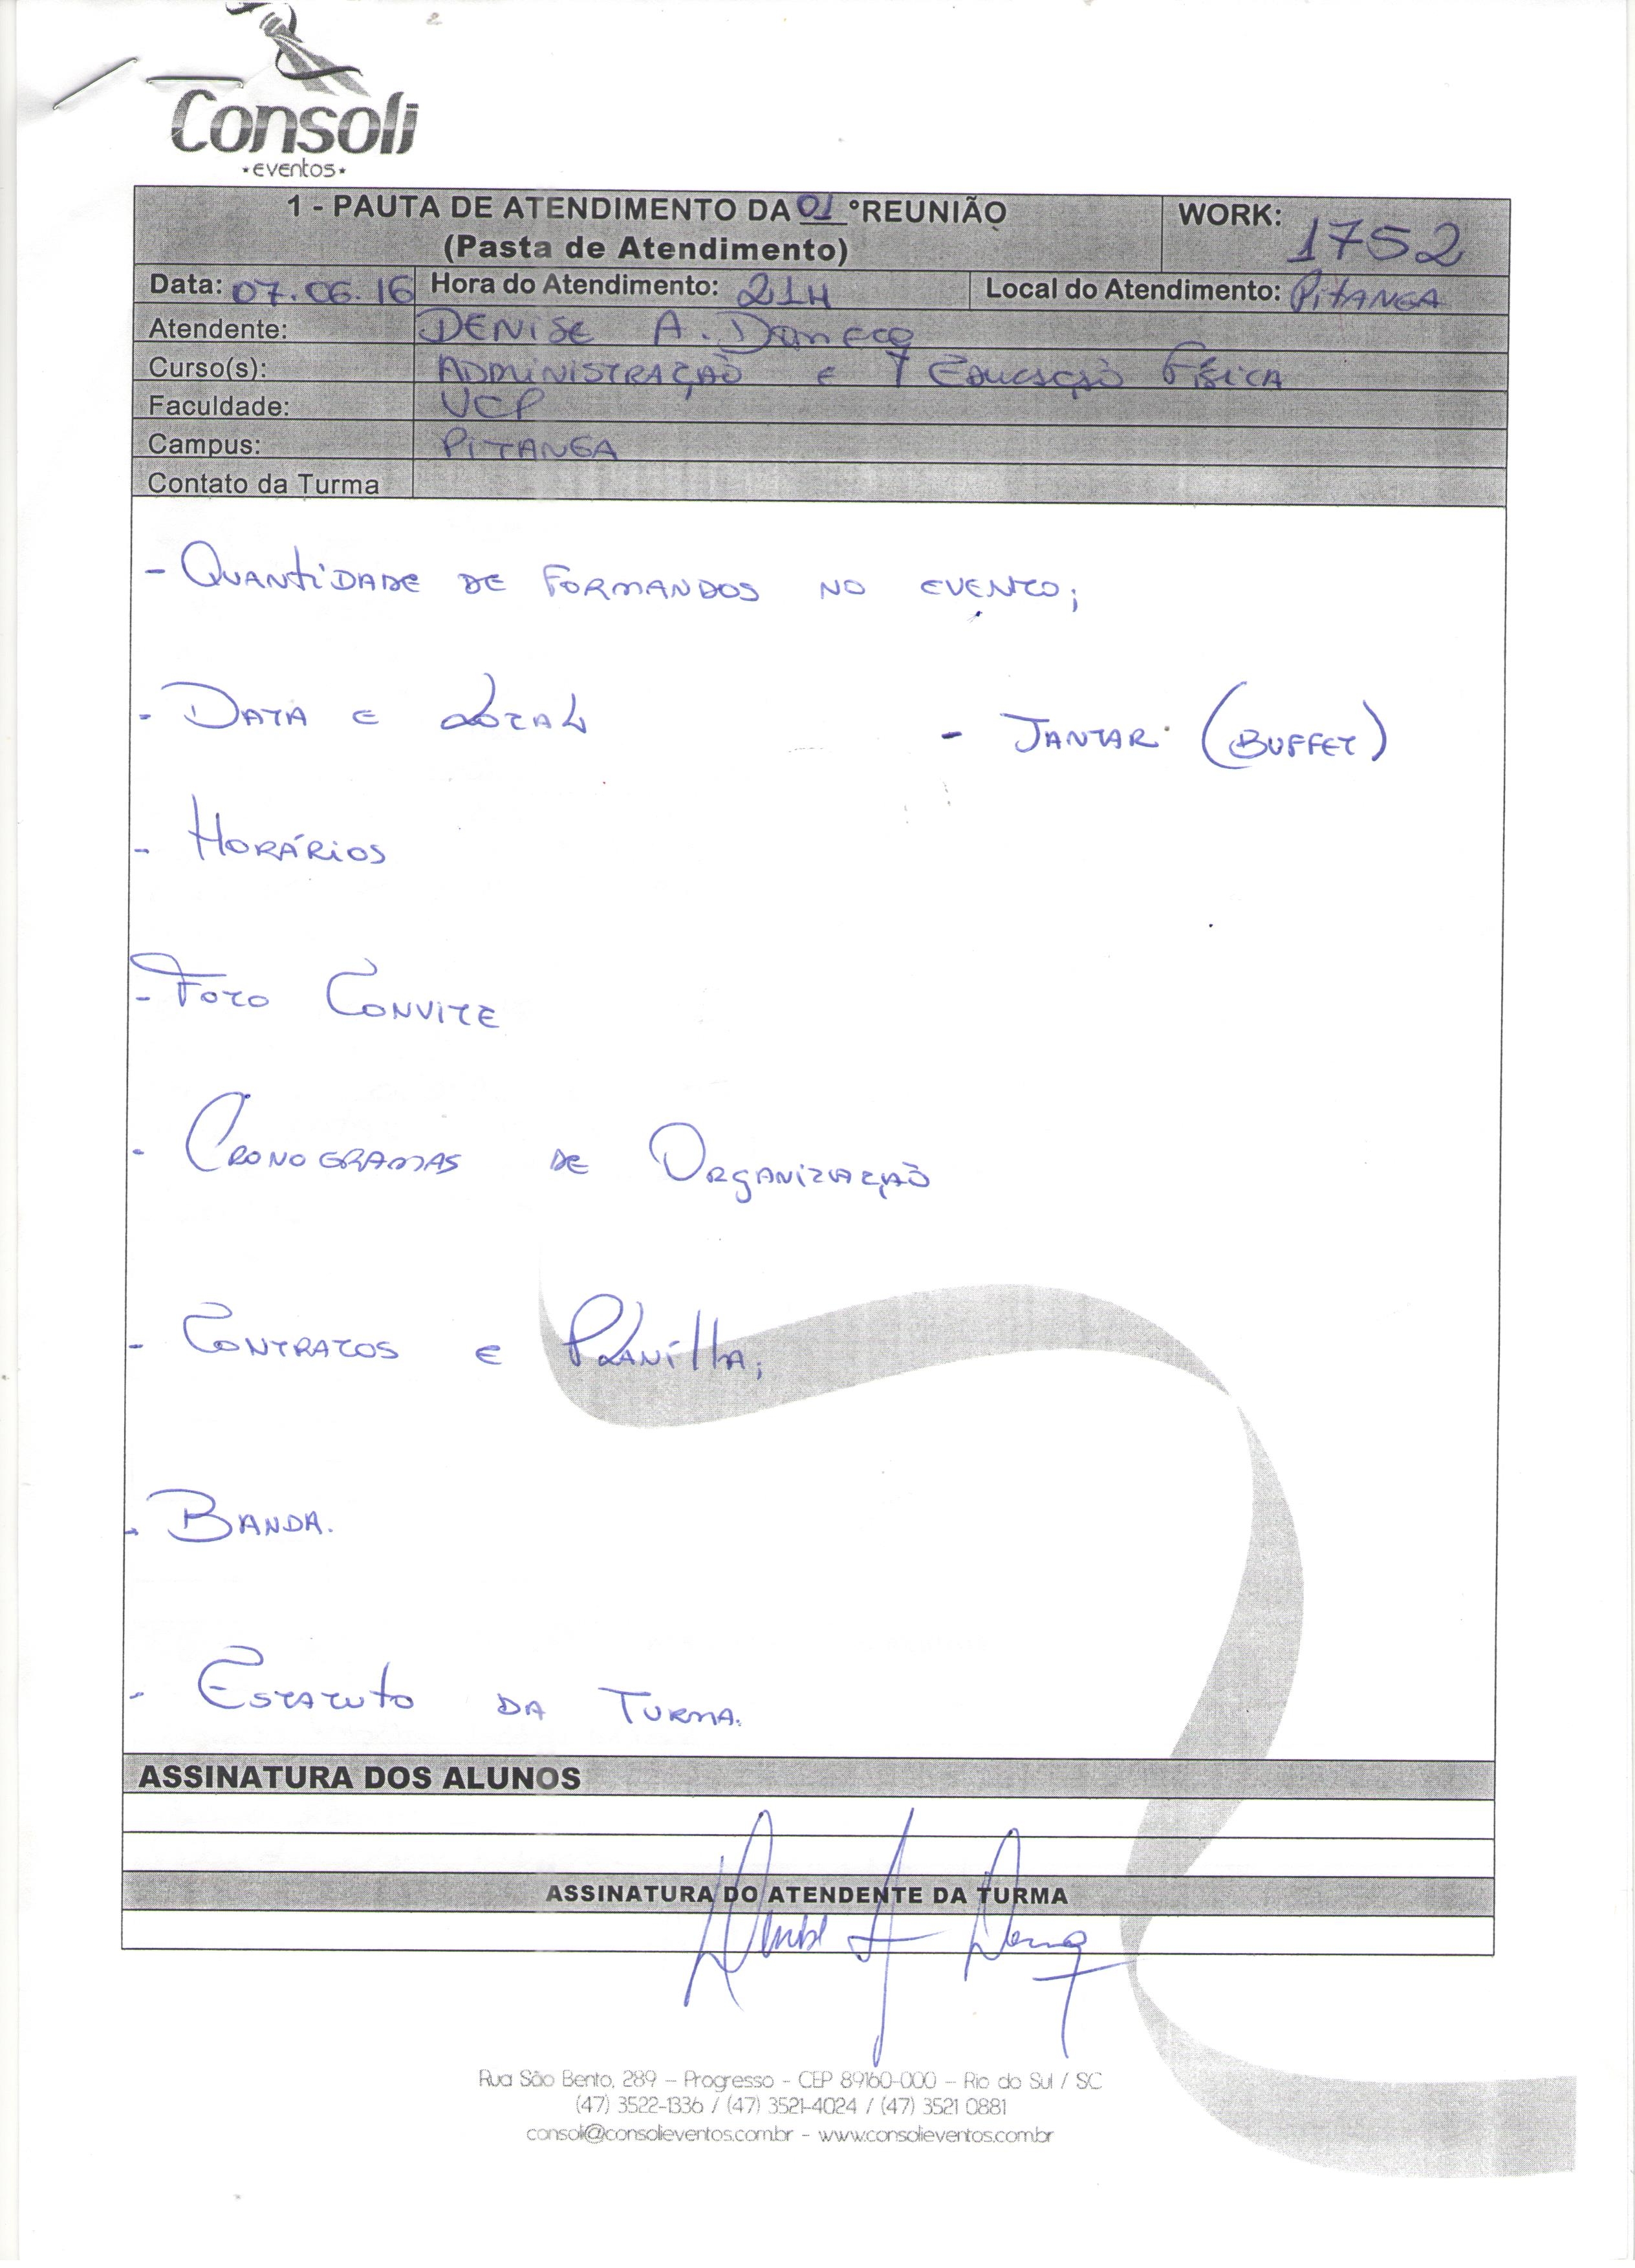 Consoli
•eventos•
1 - PAUTA DE ATENDIMENTO DA 01 ºREUNIÃO
(Pasta de Atendimento)
WORK: 1752
Data: 07.06.16 Hora do Atendimento: 21H Local do Atendimento: PITANGA
Atendente: DENISE A.
Curso(s): ADMINISTRAÇÃO E EDUCAÇÃO FÍSICA
Faculdade: UCP
Campus: PITANGA
Contato da Turma
- QUANTIDADE DE FORMANDOS NO EVENTO;
- DATA E LOCAL - JANTAR (BUFFET)
- HORÁRIOS
- FOTO CONVITE
- CRONOGRAMAS DE ORGANIZAÇÃO
- CONTRATOS E PLANILHA;
- BANDA.
- ESTATUTO DA TURMA.
ASSINATURA DOS ALUNOS
ASSINATURA DO ATENDENTE DA TURMA
Rua São Bento, 289 – Progresso - CEP 89160-000 – Rio do Sul / SC
(47) 3522-1336 / (47) 3521-4024 / (47) 3521 0881
consoli@consolieventos.com.br - www.consolieventos.com.br